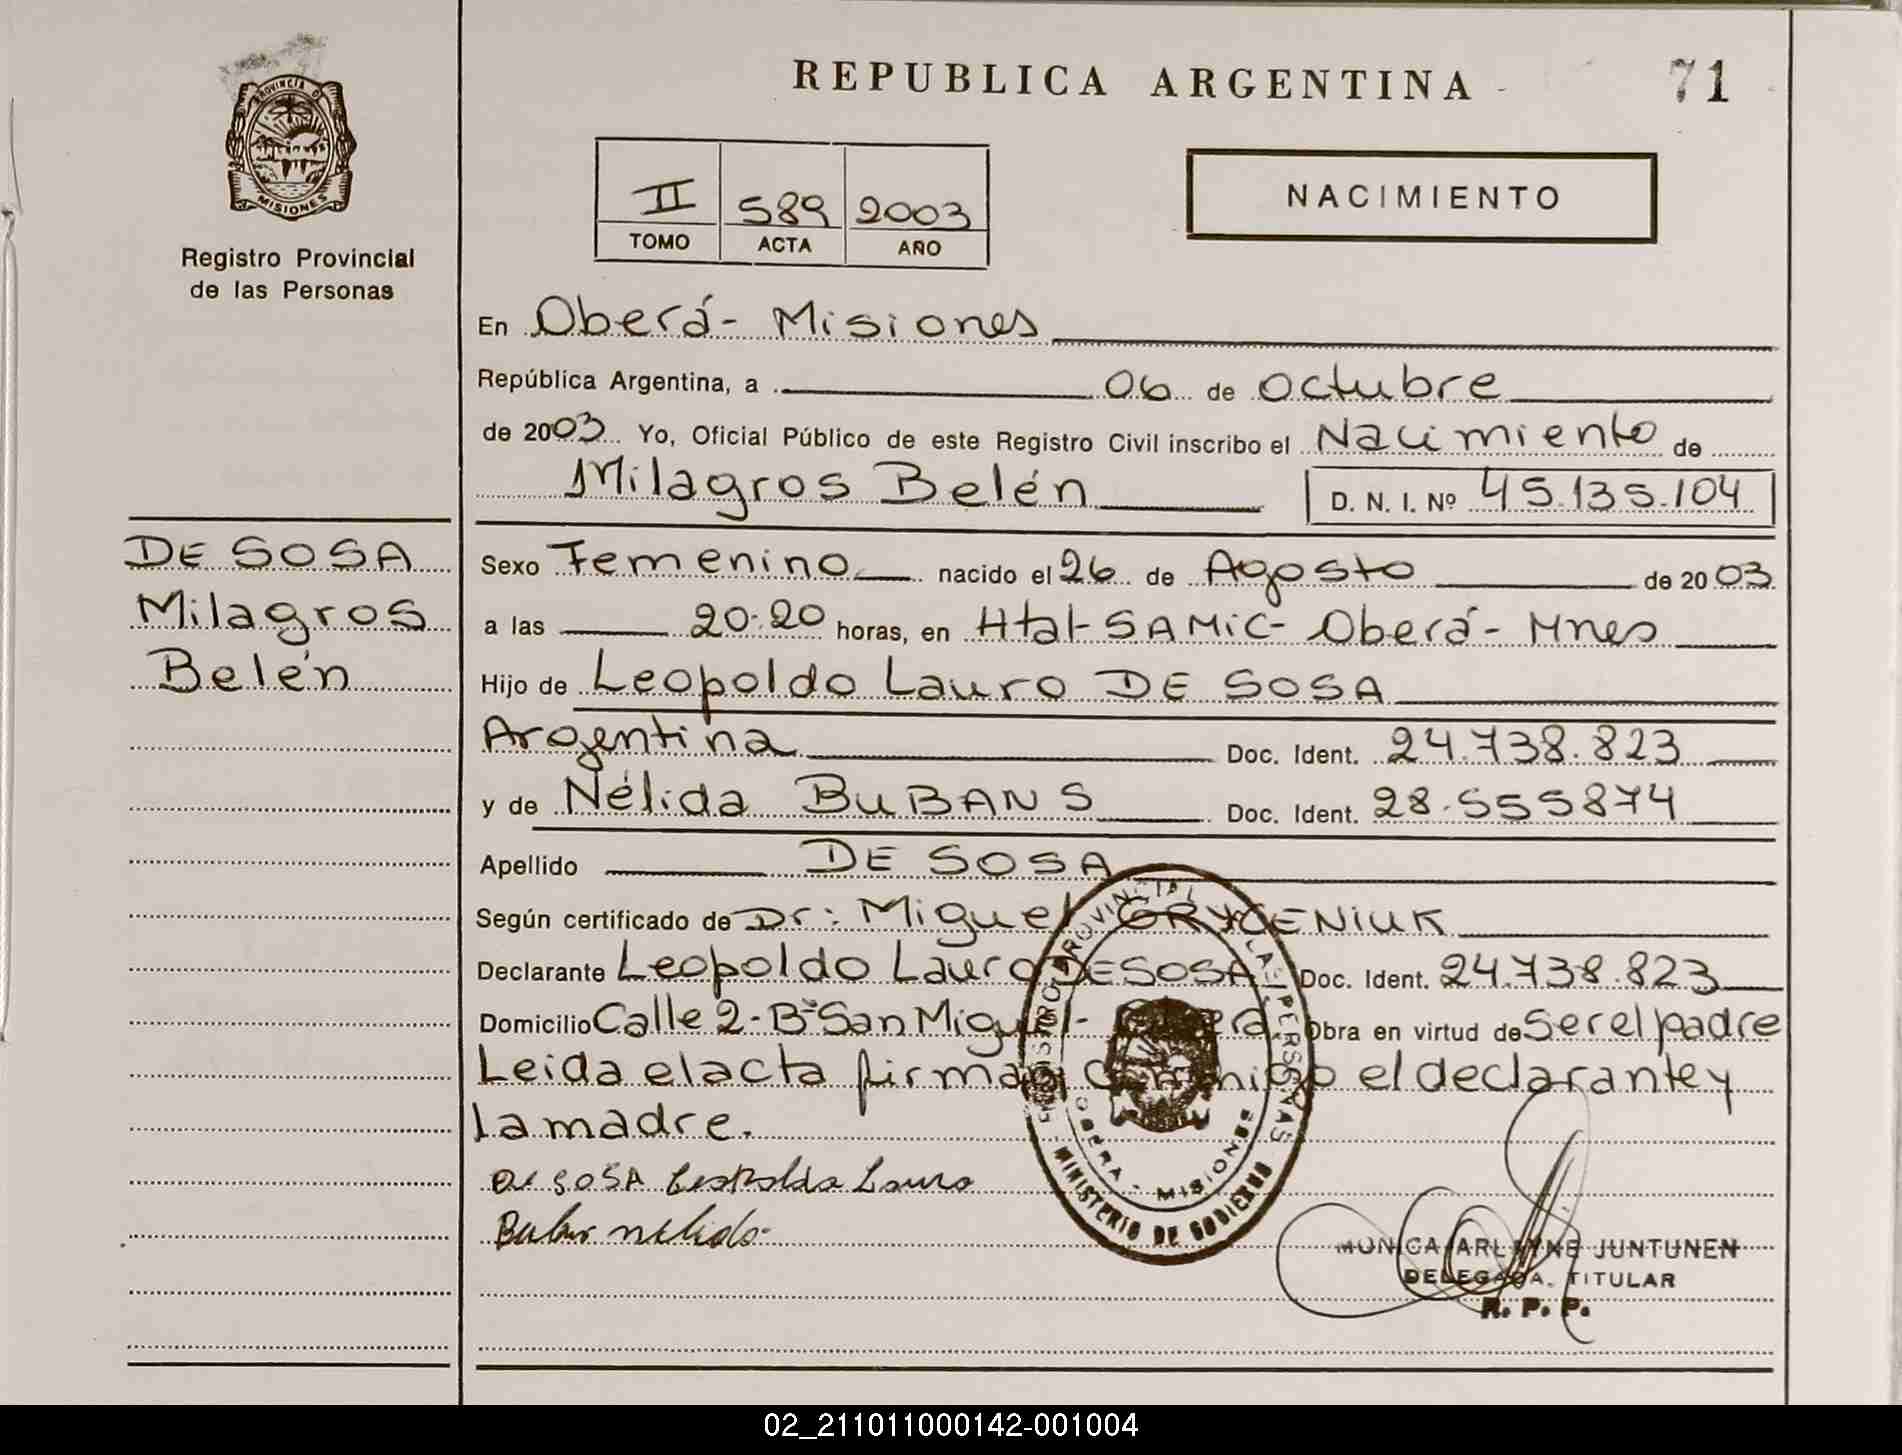 REPUBLICA ARGENTINA
71
PROVINCIA DE
MISIONES
Registro Provincial
de las Personas
II 589 2003
TOMO ACTA AÑO
NACIMIENTO
En Oberá - Misiones
República Argentina, a 06 de Octubre
de 2003 Yo, Oficial Público de este Registro Civil inscribo el Nacimiento de
Milagros Belén D. N. I. Nº 45.135.104
DE SOSA
Milagros
Belén
Sexo Femenino nacido el 26 de Agosto de 2003
a las 20:20 horas, en Htal-SAMIC- Oberá - Mnes
Hijo de Leopoldo Lauro DE SOSA
Argentina Doc. Ident. 24.738.823
y de Nélida BUBANS Doc. Ident. 28.555874
Apellido DE SOSA
Según certificado de Dr: Miguel GRYCENIUK
Declarante Leopoldo Lauro DE SOSA Doc. Ident. 24.738.823
Domicilio Calle 2 - Bº San Miguel - Oberá Obra en virtud de Ser el padre
Leida el acta firman conmigo el declarante y
la madre.
De SOSA Leopoldo Lauro
Bubans nelida
REGISTRO PROVINCIAL DE LAS PERSONAS
OBERA - MISIONES
MINISTERIO DE GOBIERNO
MONICA ARLAYNE JUNTUNEN
DELEGADA TITULAR
R. P. P.
02_211011000142-001004